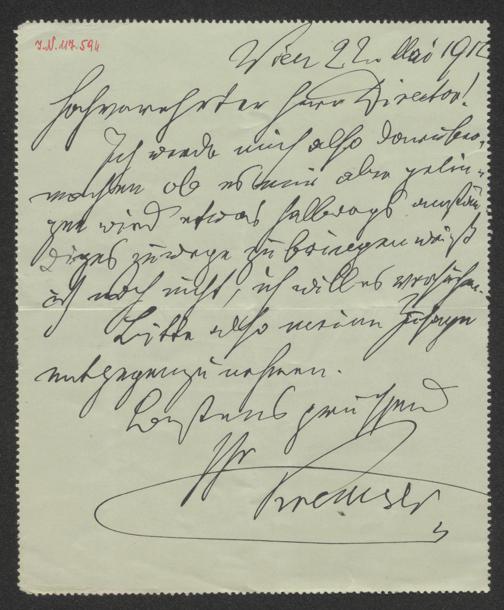 J.N. 117.594
Wien 22. Mai 191
Hochverehrter Herr Director!
Ich werde mich also darüber
machen ob es mir aber gelin-
gen wird etwas halbwegs anstän-
diges zuwege zu bringen weiß
ich noch nicht, ich will es versuchen.
Bitte also meine Zusage
entgegenzunehmen.
Bestens grüssend
Ihr
Kremser